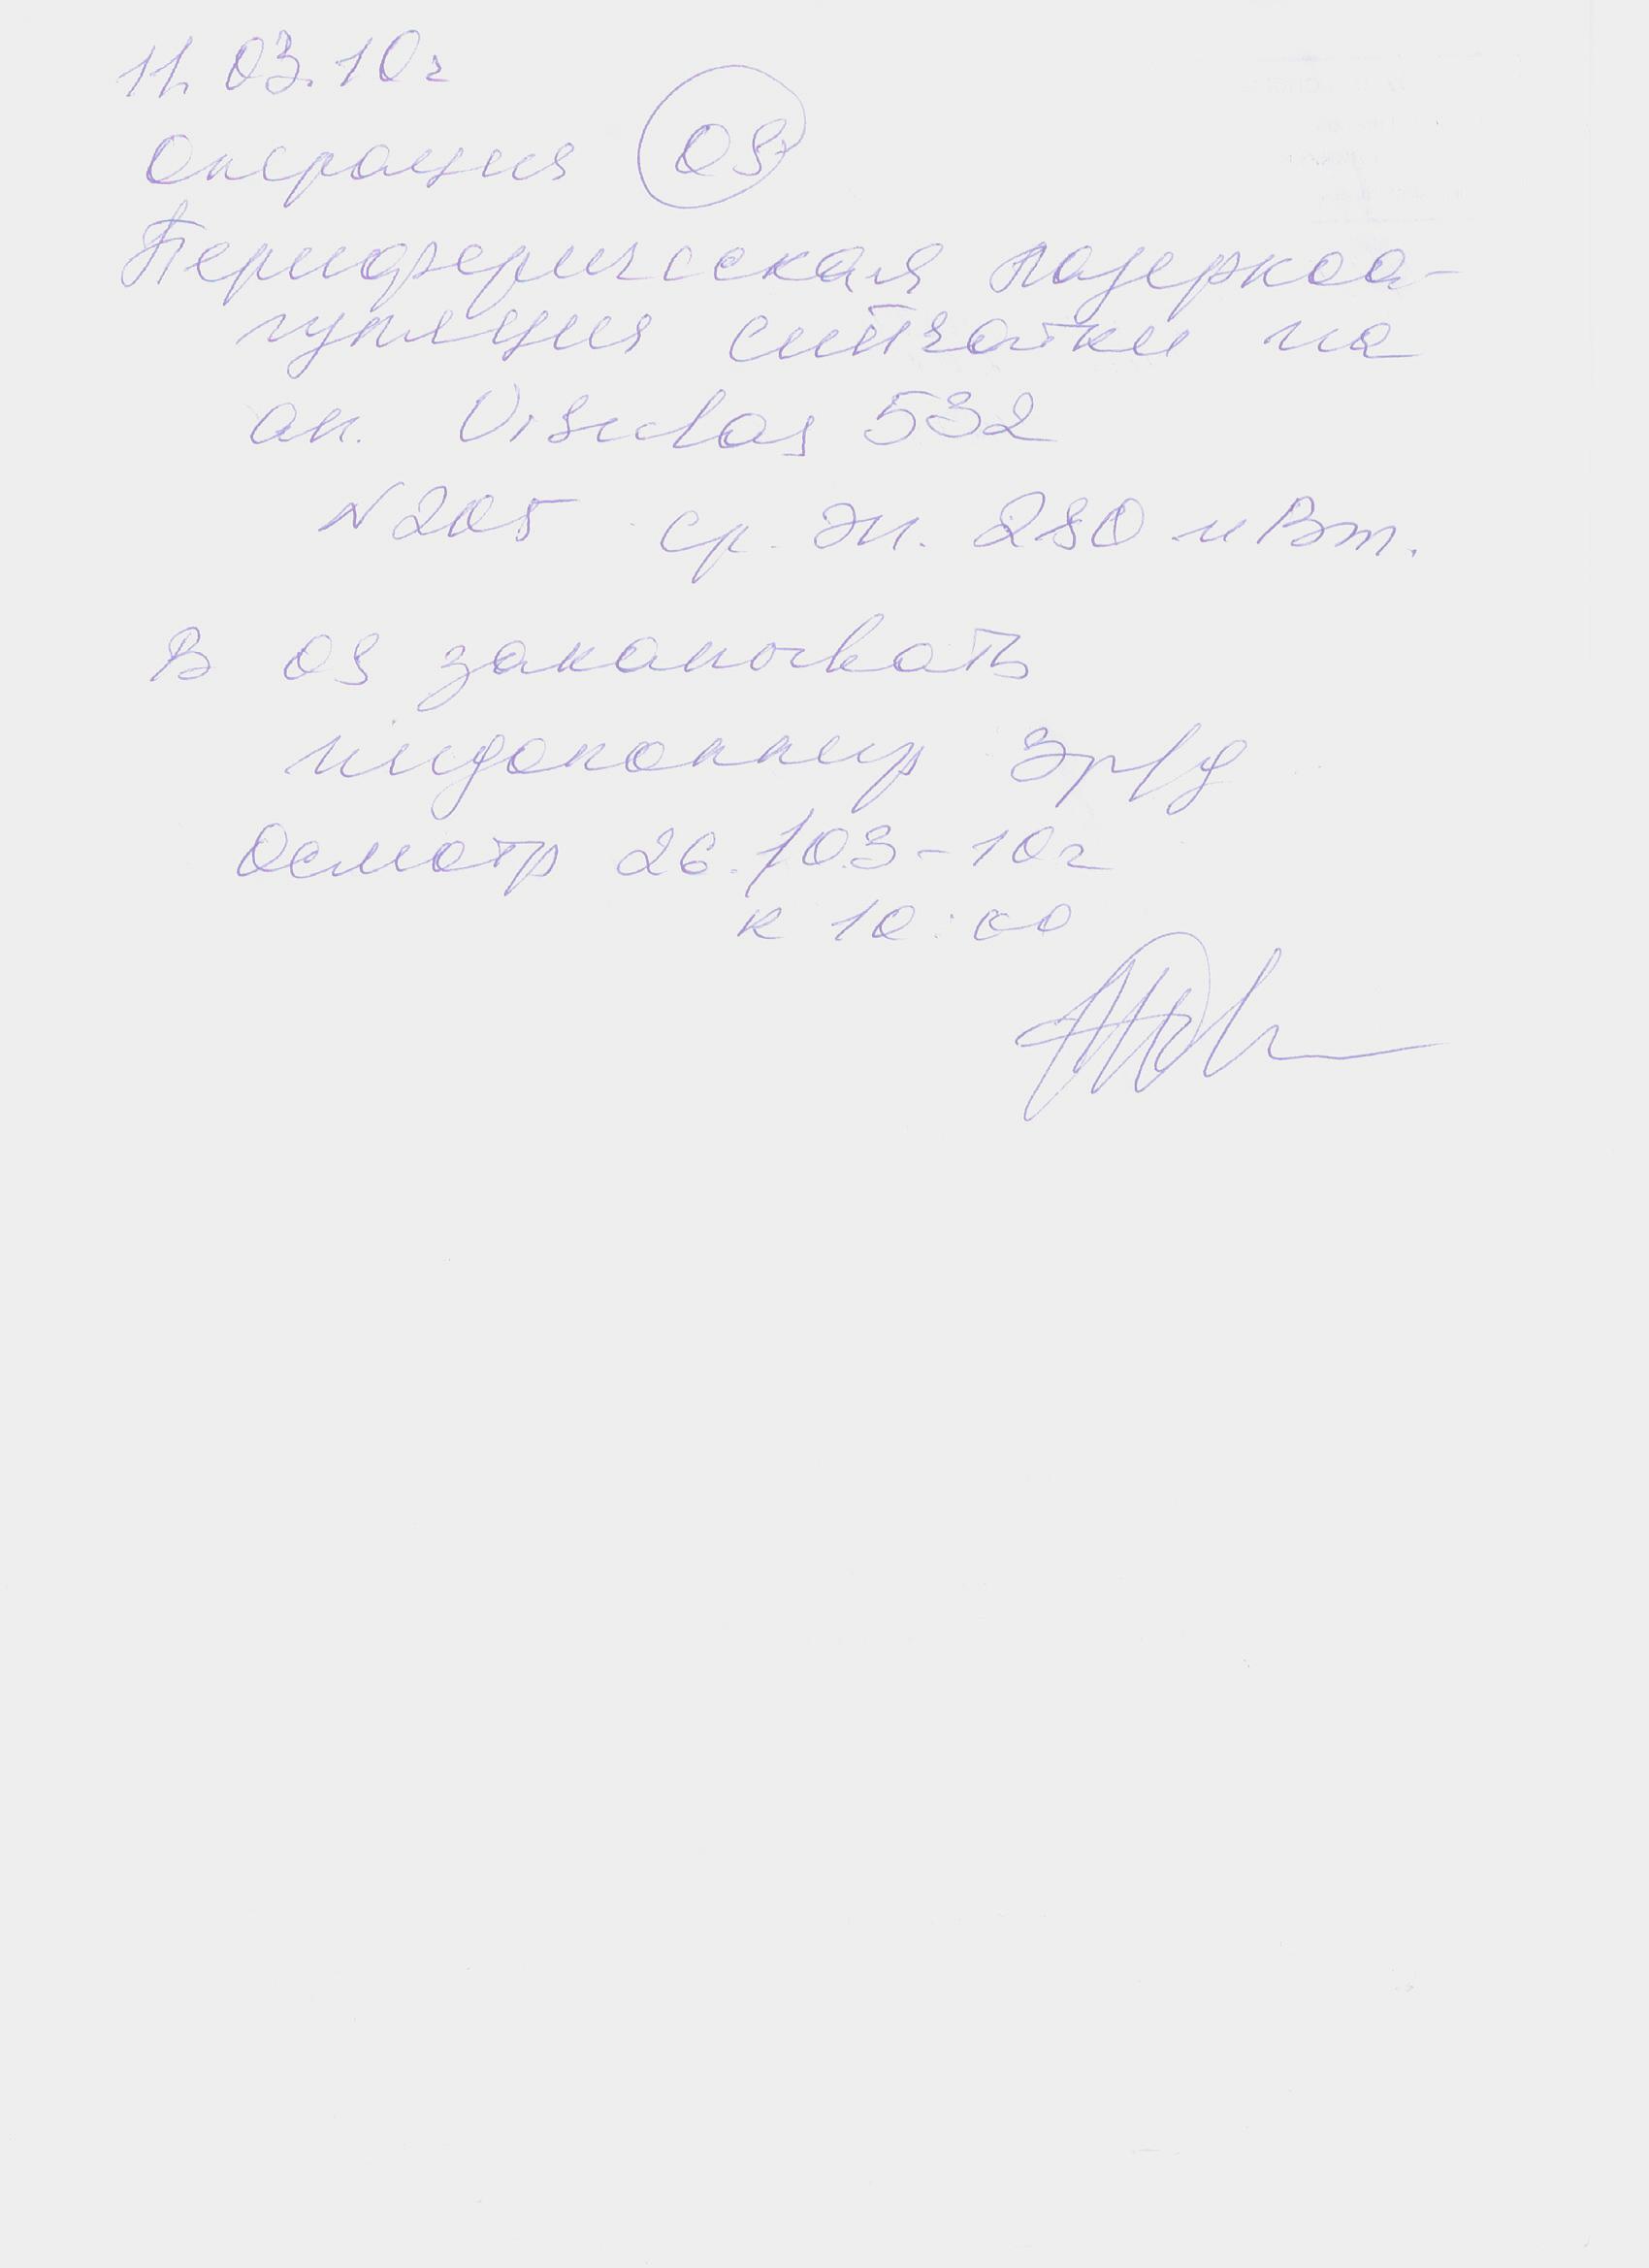 11.03.10г
Операция OS
Периферическая лазеркоа-
гуляция сетчатки на
ап. Visulas 532
N205 ср. эн. 280 мВт.
В OS закапывать
индоколлир 3р/д
Осмотр 26./03-10г
к 10:00